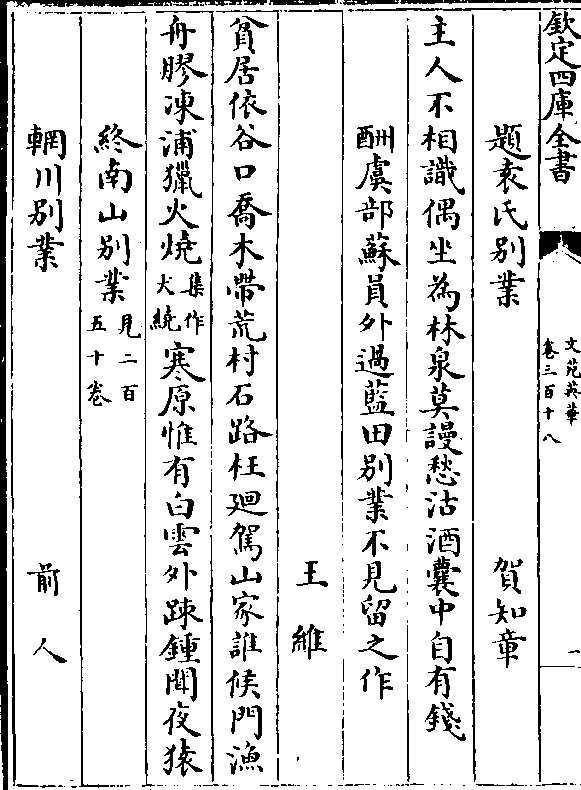 欽定四庫全書
文苑英華
卷三百十八
一
題袁氏別業　賀知章
主人不相識偶坐為林泉莫謾愁沽酒囊中自有錢
酬虞部蘇員外過藍田別業不見留之作
王維
貧居依谷口喬木帶荒村石路枉廻駕山家誰候門漁
舟膠凍浦獵火燒集作犬繞寒原惟有白雲外疎鍾聞夜猿
終南山別業見二百五十卷
輞川別業　前人